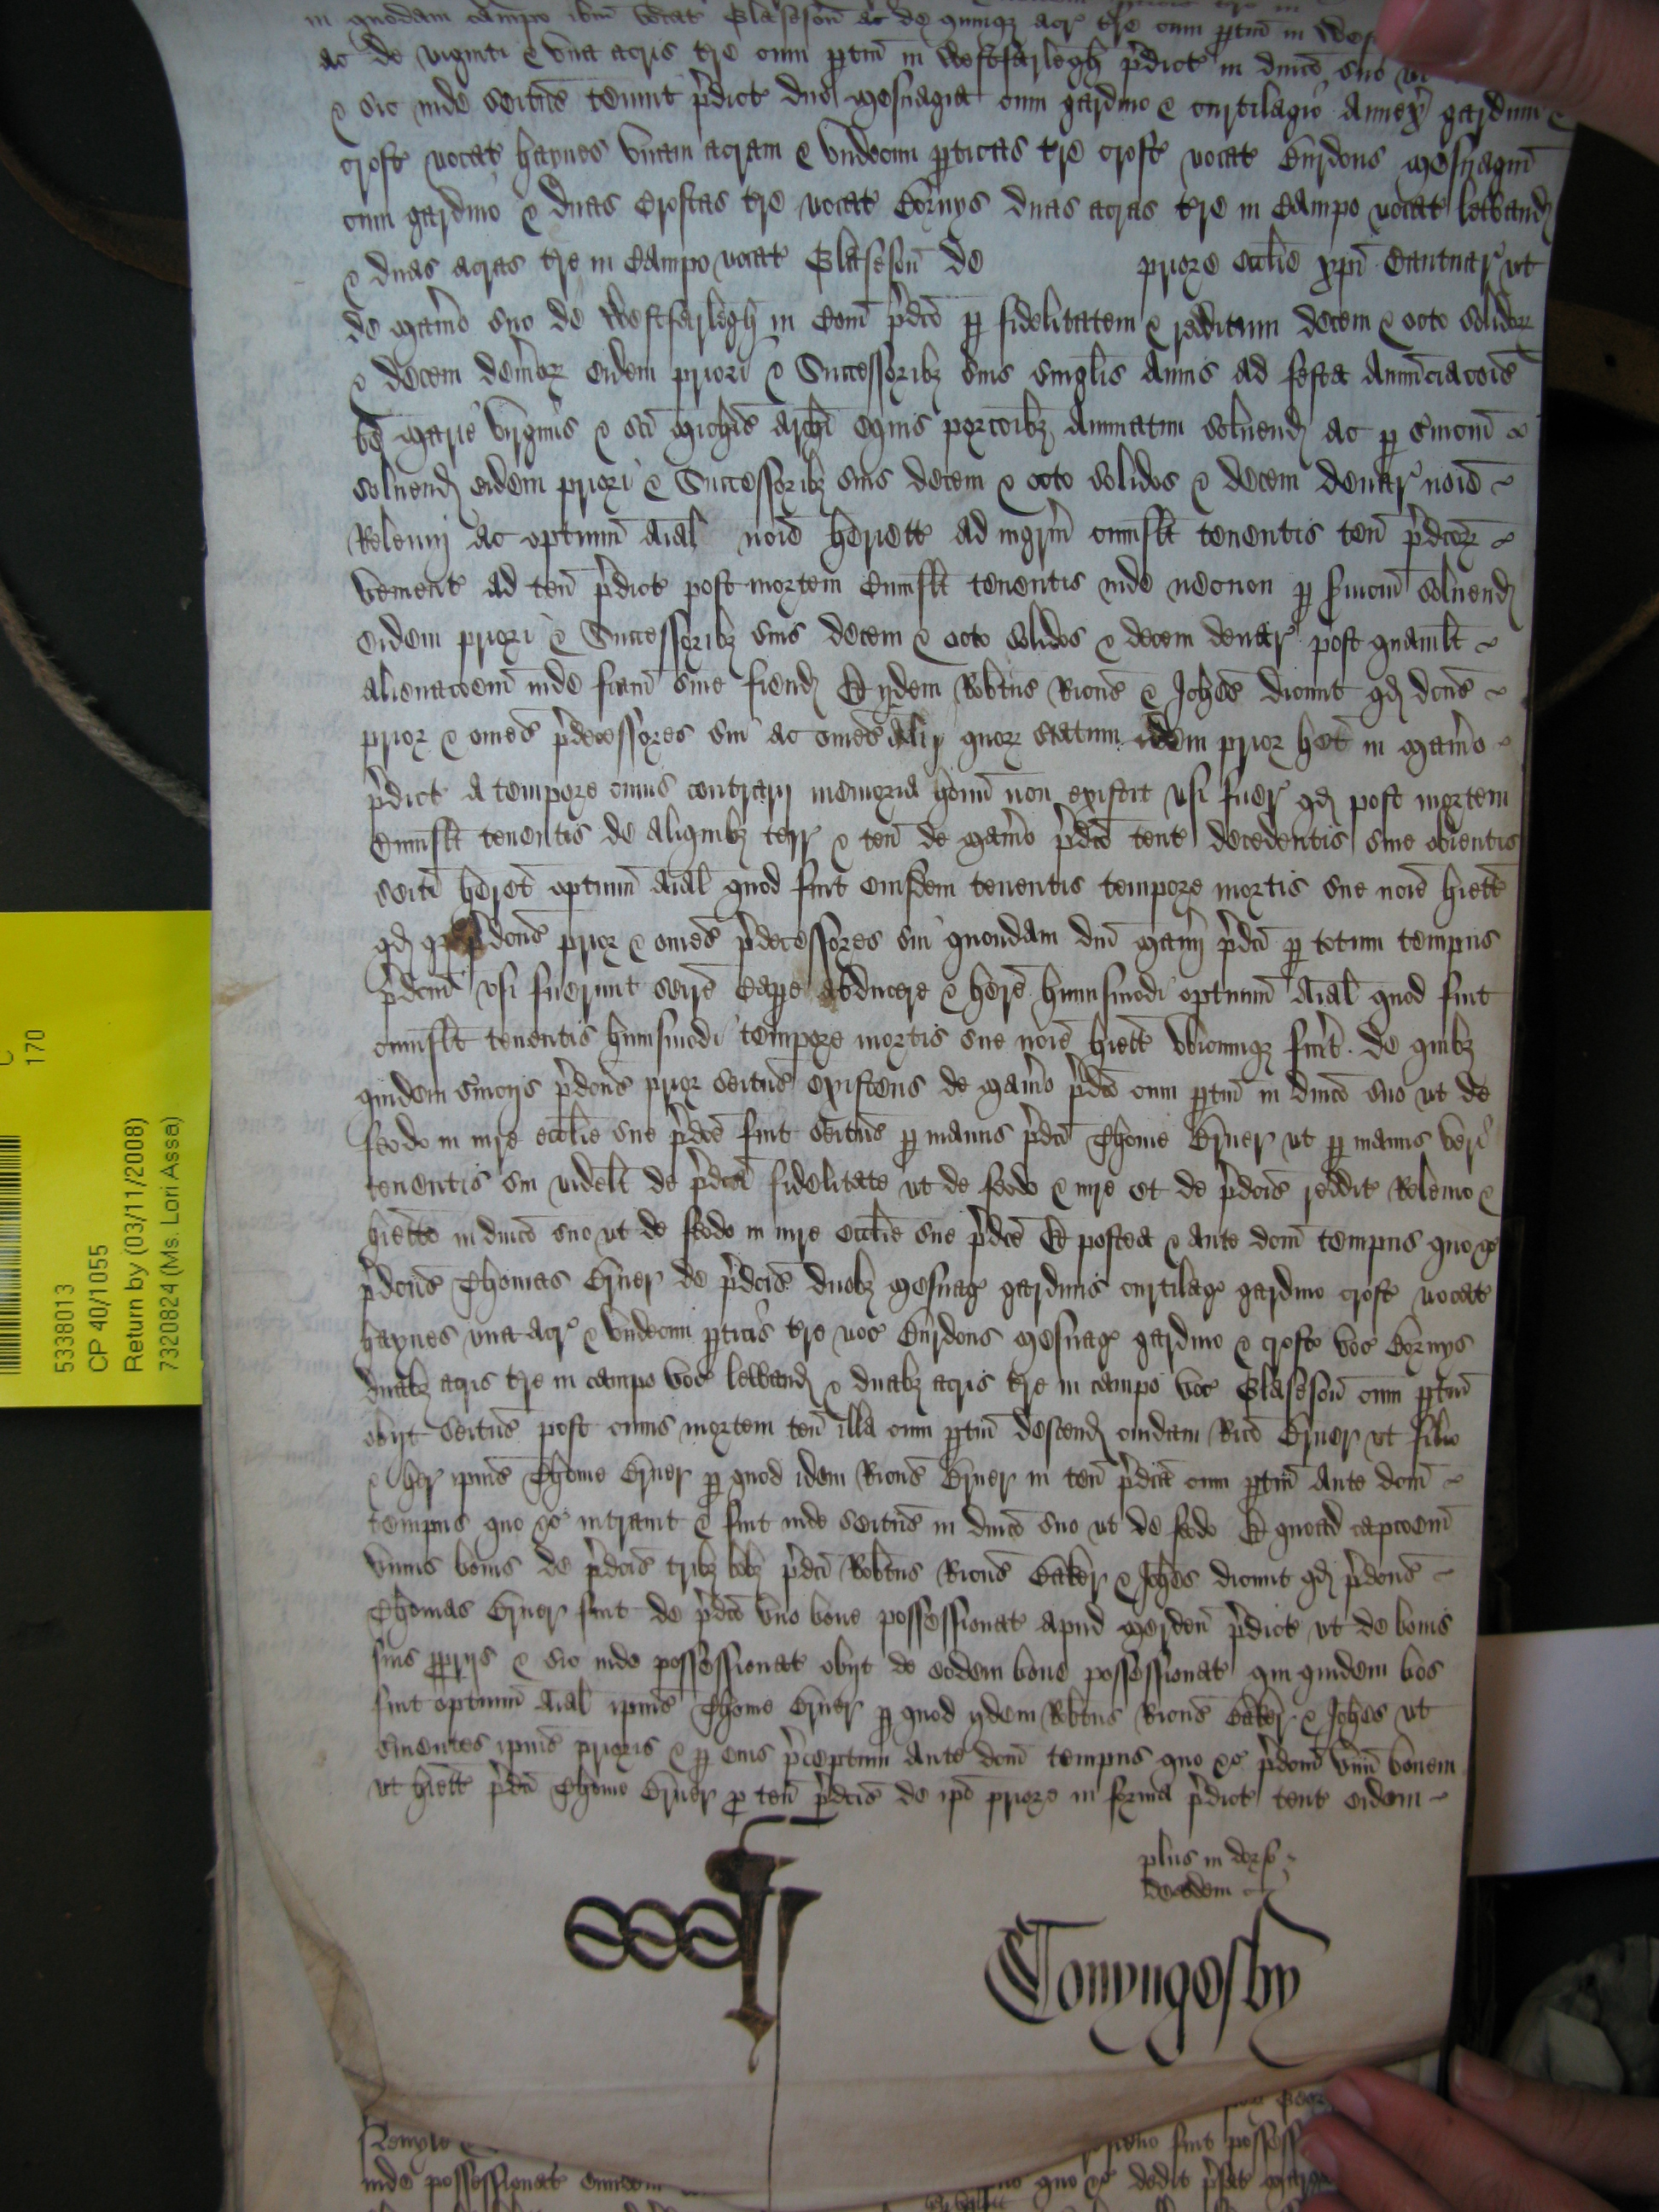 in quodam campo ibm vocat Glaseson ac de quinqz acr tre cum ptin in
ac de viginti & una acris tre cum ptin in Westfarlegh pdict in dnico suo
& sic inde seitus tenuit pdict duo mesuagia cum gardino & curtilagio annex gardinu &
croft vocat haynes unam acram & undecim pticas tre croft vocat Gurdons mesuagiu
cum gardino & duas croftas tre vocat Cornys duas acras tre in Campo vocat lewand
& duas acras tre in Campo vocat Glaseson de priore ecclie xpi Cantuar ut
de man'io suo de Westfarlegh in Com pdco p fidelitatem & redditum decem & octo solidor
& decem denarior eidem priori & Successoribz suis singlis annis ad festa Annunciacois
be marie virginis & sci michis archi equis porcoibz annuatim solvend ac p sviciu
solvend eidem priori & Successoribz suis decem & octo solidos & decem denar noie
Relevij ac optimu aial noie heriett ad ingrm cuiuslt tenentis ten pdcor
venient ad ten pdict post mortem cuiuslt tenentis inde necnon p sviciu solvend
eidem priori & Successoribz suis decem & octo solidos & decem denar post quamlt
alienacoem inde fiam sive fiend Et ijdem Robtus Ricus & Johes dicunt qd dcus
prior & omes pdecessores sui ac omes alij quor statum idem prior het in man'io
pdict a tempore cuius contrarij memoria hoim non existit usi fuer qd post mortem
cuiuslt tenentis de aliquibz terr & ten de man'io pdco tent decedentis sive obientis
seiti heret optimu aial quod fuit eiusdem tenentis tempore mortis sue noie hiett
qd pdcus prior & omes pdecessores sui quondam dni man'ij pdci p totum tempus
pdcm usi fuerunt seire Cape abducere & here huiusmodi optimum aial quod fuit
cuiuslt tenentis huiusmodi tempore mortis sue noie hiett ubicumqz fu'it de quibz
quidem s'vicijs pdcus prior seitus existens de man'io pdco cum ptin in dnico suo ut de
feodo in iure ecclie sue pdce fuit seitus p manus pdci Thome Turner ut p manus veri
tenentis sui videlt de pdca fidelitate ut de feodo & iure et de pdcis reddit Relevio &
hietto in dnico suo ut de feodo in iure ecclie sue pdce Et postea & ante dcm tempus quo &c
pdcus Thomas Turner de pdcis duobz mesuag gardinis curtilag gardino croft vocat
haynes una acr & undecim pticis tre voc Gurdons mesuag gardino & croft voc Cornys
duabz acris tre in campo voc lewand & duabz acris tre in campo voc Glaseson cum ptin
obijt seitus post cuius mortem ten illa cum ptin descend cuidam Rico Turner ut filio
& her ipius Thome Turner p quod idem Ricus Turner in ten pdict cum ptin ante dcm
tempus quo &c intravit & fuit inde seitus in dnico suo ut de feodo Et quoad capcoem
unius bovis de pdcis tribz bobz pdci Robtus Ricus Baker & Johes dicunt qd pdcus
Thomas Turner fuit de pdco uno bove possessionat apud merden pdict ut de bonis
suis pprijs & sic inde possessionat obijt de eodem bove possessionat qui quidem bos
fuit optimu aial ipius Thome Turner p quod ijdem Robtus Ricus Baker & Johes ut
s'vientes ipius prioris & p eius pceptum ante dcm tempus quo &c pdcm unu bovem
ut hiett pdci Thome Turner p ten pdcis de ipo priore in forma pdict tent eidem
plus in dorso
de eodem
Conyngesby
inde possessionat
quo &c dedit
5338013
CP 40/1055
Return by (03/11/2008)
7320824 (Ms. Lori Assa)
C
170